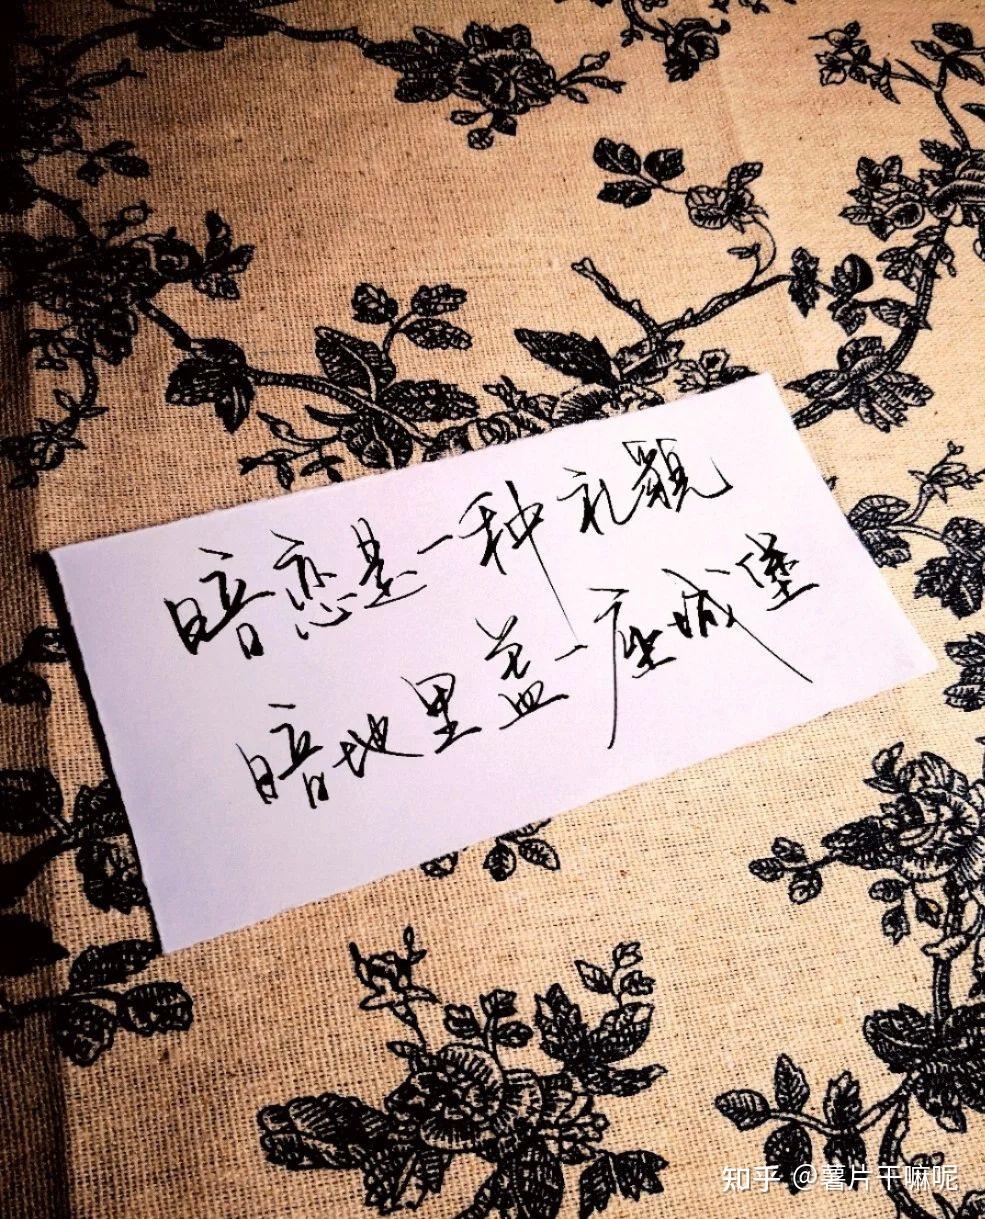 暗恋是一种礼貌
暗地里盖一座城堡
知乎 @薯片干嘛呢